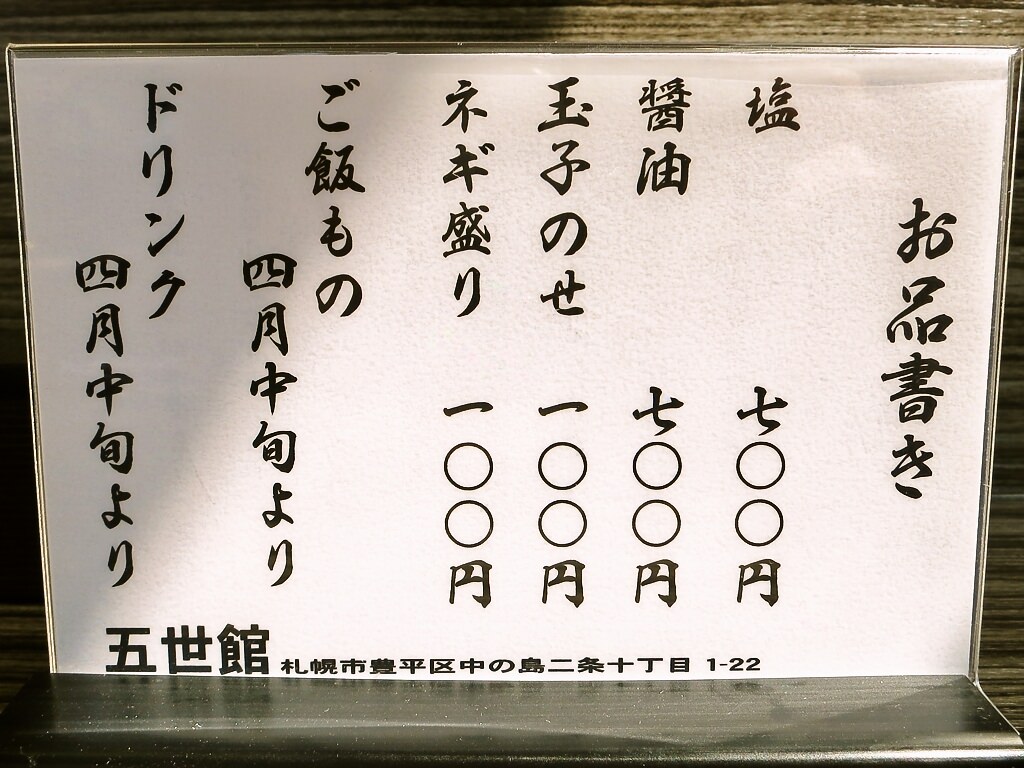 お品書き
塩 七〇〇円
醤油 七〇〇円
玉子のせ 一〇〇円
ネギ盛り 一〇〇円
ご飯もの
四月中旬より
ドリンク
四月中旬より
五世館 札幌市豊平区中の島二条十丁目 1-22